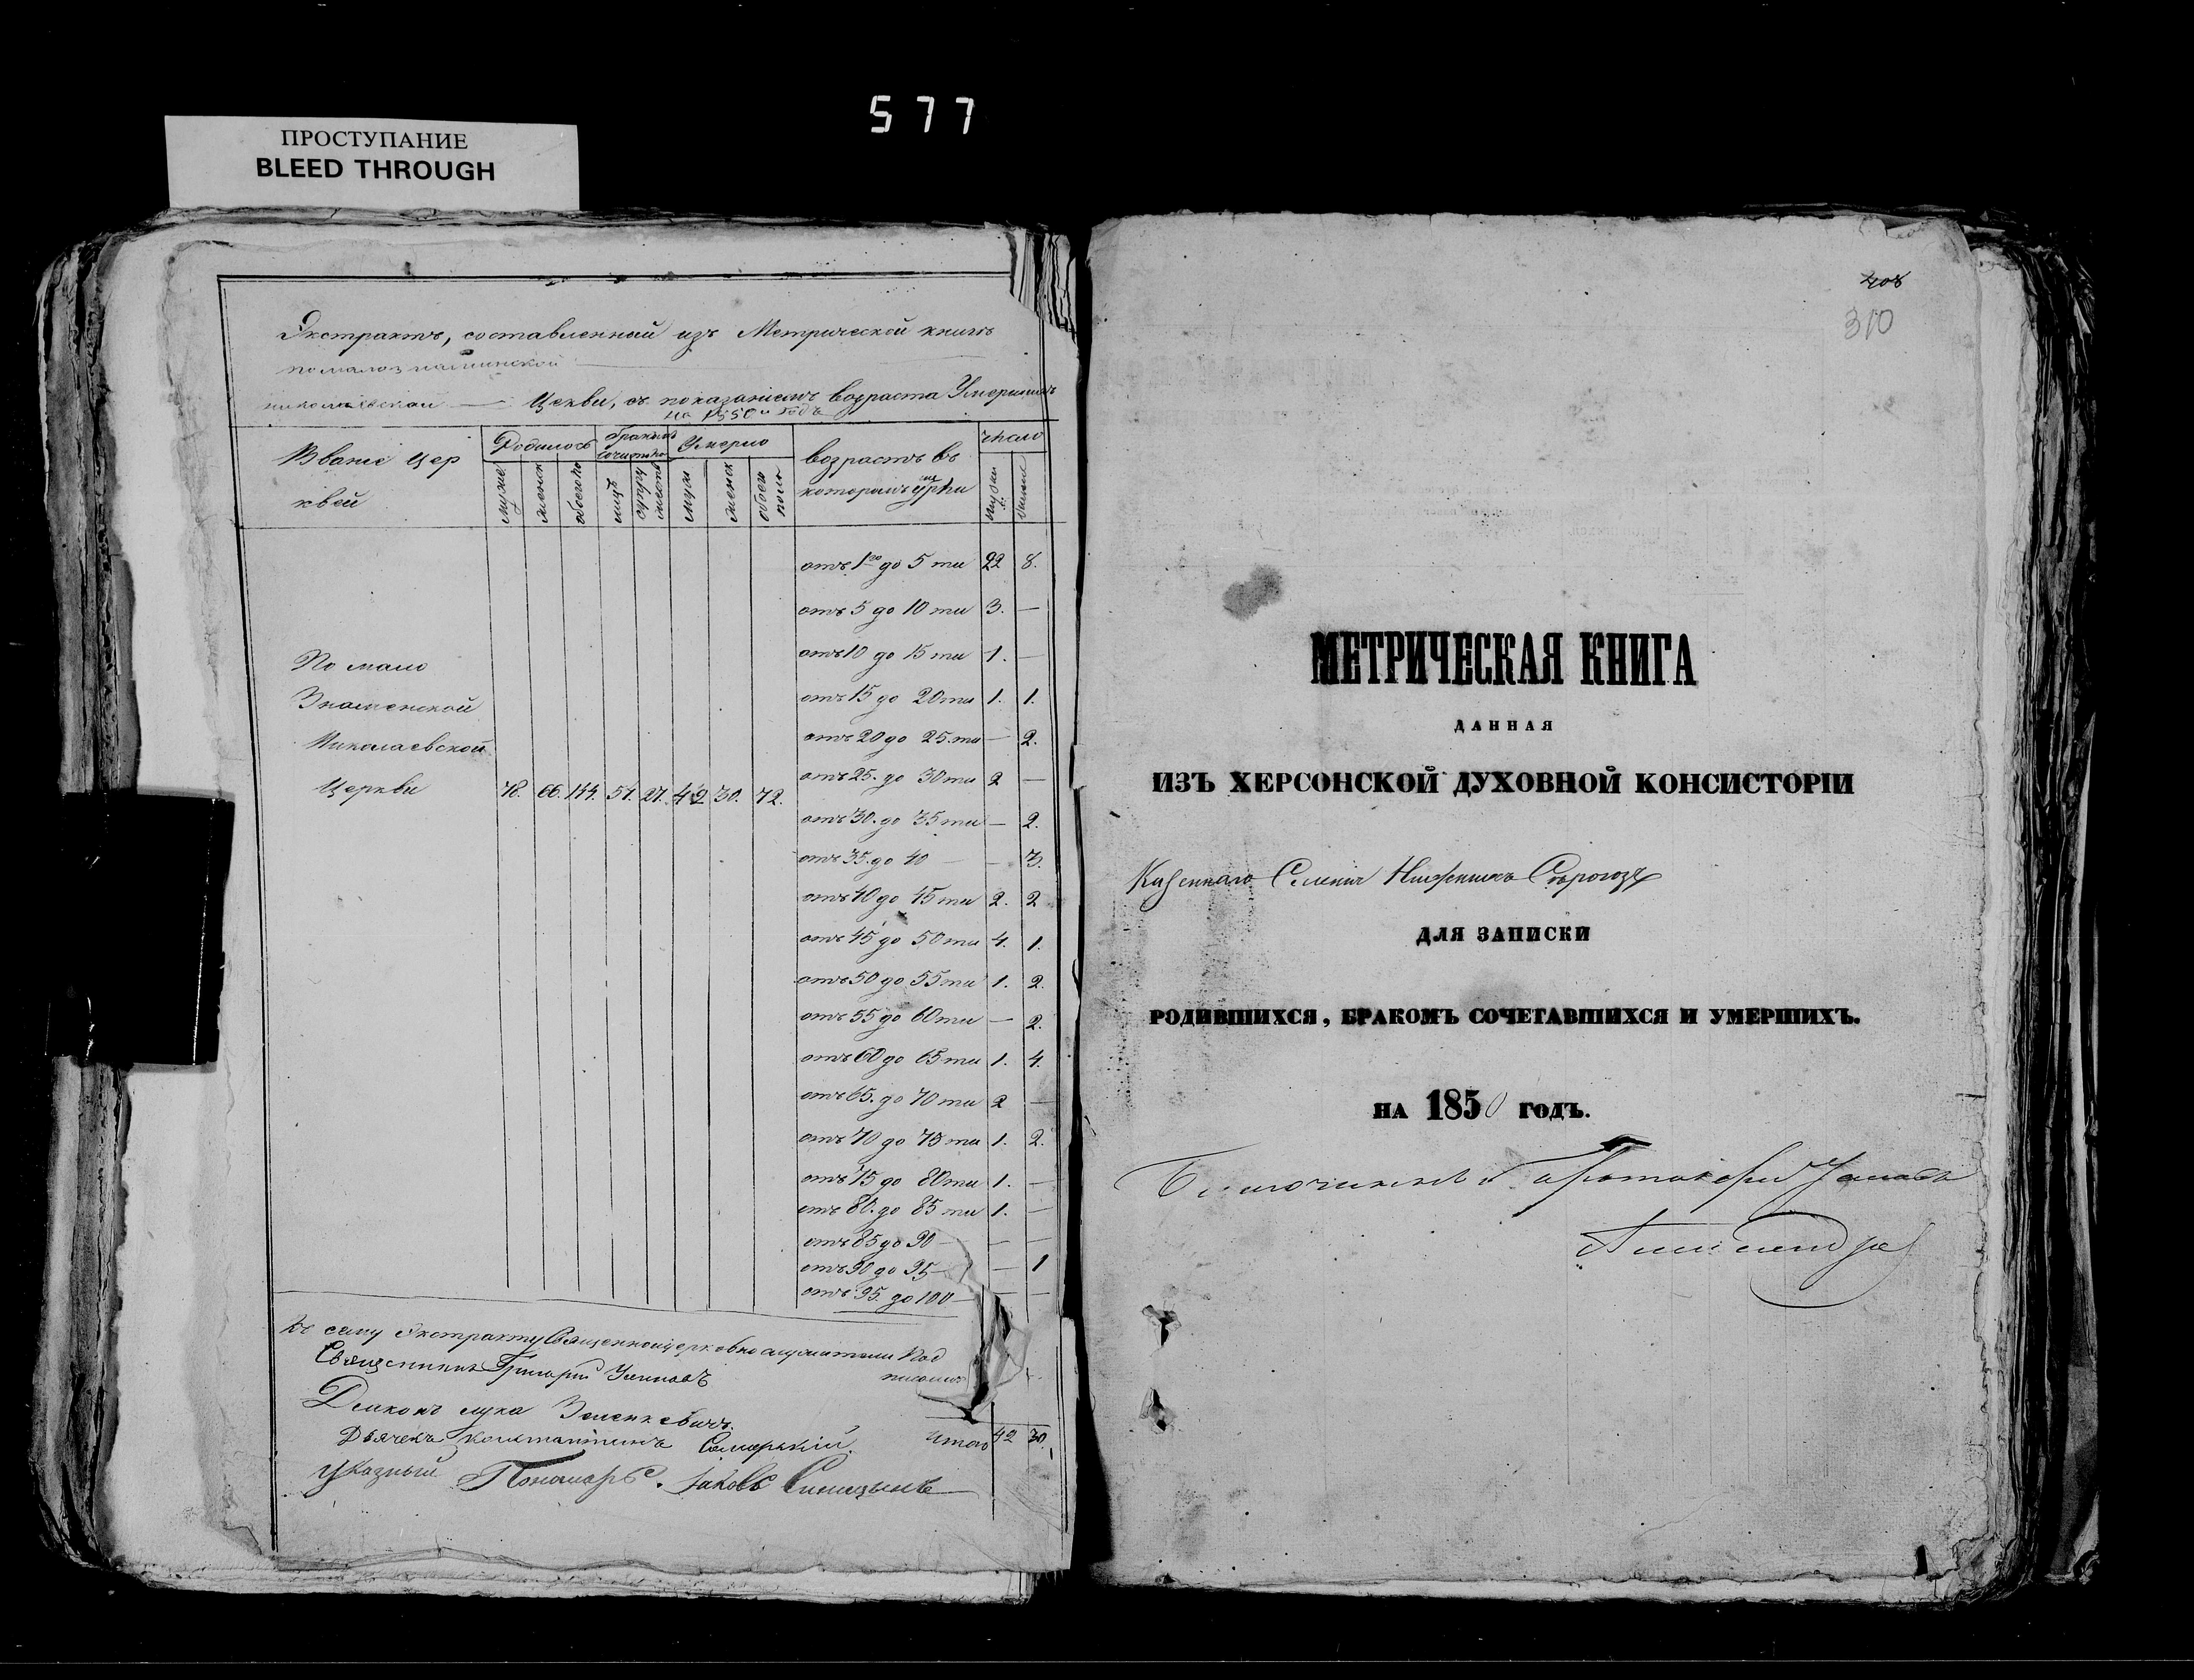 577
ПРОСТУПАНИЕ
BLEED THROUGH
Экстрактъ, составленный изъ Метрической книги
по малознаменской
николаевской — Церкви, съ показаніемъ возраста Умершихъ
на 1850й годъ
Званіе цер
квей
Родилось
бракомъ
сочетано
Умерло
возрастъ въ
которомъ умерли
число
мужск женск обоего лицъ супружествъ мужск женск обоего пола
мужск женск
отъ 1го до 5 ти 22 8.
отъ 5 до 10 ти 3. —
отъ 10 до 15 ти 1. —
отъ 15 до 20 ти 1. 1.
отъ 20 до 25. ти — 2.
отъ 25. до 30 ти 2 —
отъ 30. до 35 ти — 2.
отъ 35. до 40 — — 3.
отъ 40 до 45 ти 2. 2
отъ 45 до 50 ти 4. 1.
отъ 50 до 55 ти 1. 2.
отъ 55 до 60 ти — 2.
отъ 60 до 65 ти 1. 4.
отъ 65. до 70 ти 2 —
отъ 70 до 75 ти 1. 2.
отъ 75 до 80 ти 1. —
отъ 80. до 85 ти 1. —
отъ 85 до 90 — — —
отъ 90 до 95 — — 1
отъ 95. до 100 — — —
По мало
Знаменской
Николаевской
Церкви 78. 66. 144. 54. 27. 42. 30. 72.
Къ сему Экстракту Священноцерковнослужители Под
писались
Священникъ Григорій
Діаконъ Лука
Дьячекъ Константинъ
Итого 42 30.
Указный Пономарь Іаковъ Синицынъ
408
310
МЕТРИЧЕСКАЯ КНИГА
ДАННАЯ
ИЗЪ ХЕРСОНСКОЙ ДУХОВНОЙ КОНСИСТОРІИ
Казеннаго Селенія Нижнихъ Сѣрогозъ
ДЛЯ ЗАПИСКИ
РОДИВШИХСЯ, БРАКОМЪ СОЧЕТАВШИХСЯ И УМЕРШИХЪ.
НА 1850 ГОДЪ.